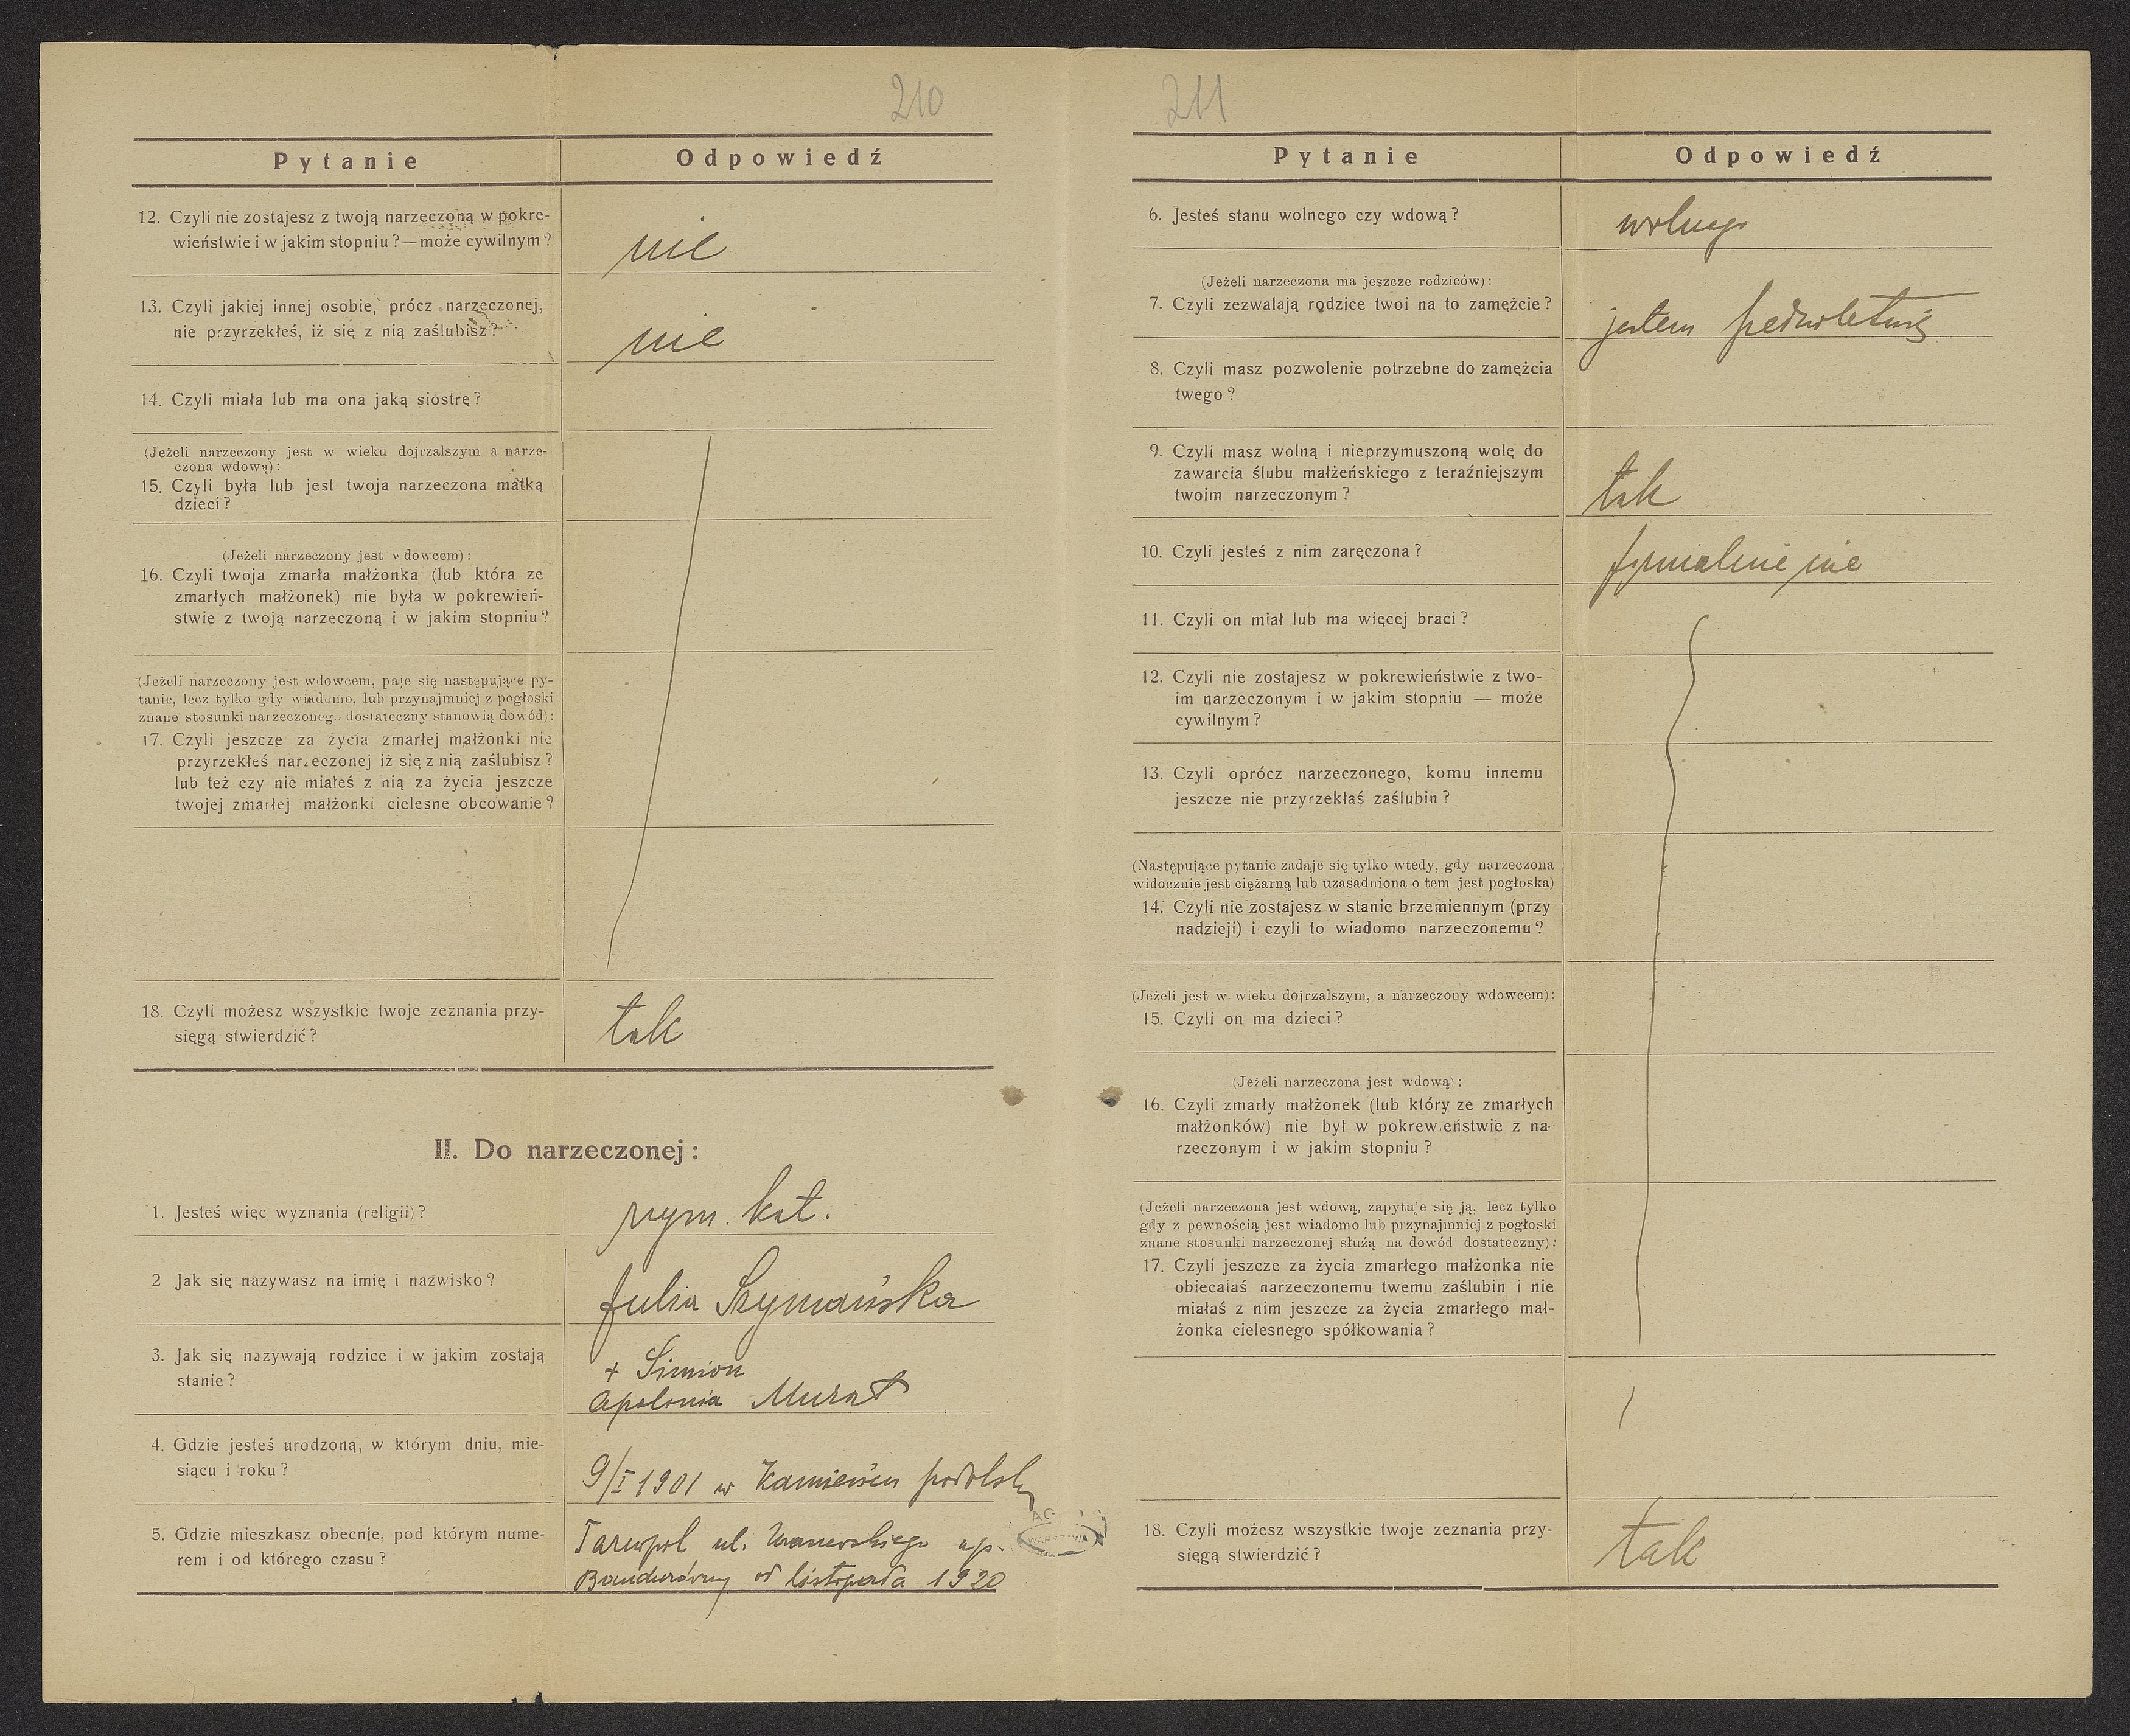 210
Pytanie Odpowiedź
12. Czyli nie zostajesz z twoją narzeczoną w pokre-
wieństwie i w jakim stopniu?—może cywilnym?
nie
13. Czyli jakiej innej osobie, prócz narzęczonej,
nie przyrzekłeś, iż się z nią zaślubisz?
nie
14. Czyli miała lub ma ona jaką siostrę?
(Jeżeli narzeczony jest w wieku dojrzalszym a narze-
czona wdową):
15. Czyli była lub jest twoja narzeczona matką
dzieci?
(Jeżeli narzeczony jest wdowcem):
16. Czyli twoja zmarła małżonka (lub która ze
zmarłych małżonek) nie była w pokrewień-
stwie z twoją narzeczoną i w jakim stopniu?
(Jeżeli narzeczony jest wdowcem, daje się następujące py-
tanie, lecz tylko gdy wiadomo, lub przynajmniej z pogłoski
znane stosunki narzeczonego dostateczny stanowią dowód):
17. Czyli jeszcze za życia zmarłej małżonki nie
przyrzekłeś narzeczonej iż się z nią zaślubisz?
lub też czy nie miałeś z nią za życia jeszcze
twojej zmarłej małżonki cielesne obcowanie?
18. Czyli możesz wszystkie twoje zeznania przy-
sięgą stwierdzić?
tak
II. Do narzeczonej:
1. Jesteś więc wyznania (religii)?
rzym. kat.
2 Jak się nazywasz na imię i nazwisko?
Julia Szymańska
3. Jak się nazywają rodzice i w jakim zostają
stanie?
+ Simion
Apolonia Murat
4. Gdzie jesteś urodzoną, w którym dniu, mie-
siącu i roku?
9/I 1901 w Kamieńcu podolsky
5. Gdzie mieszkasz obecnie, pod którym nume-
rem i od którego czasu?
Tarnopol ul.
od listopada 1920
WARSZAWA
211
Pytanie Odpowiedź
6. Jesteś stanu wolnego czy wdową?
wolnego
(Jeżeli narzeczona ma jeszcze rodziców):
7. Czyli zezwalają rodzice twoi na to zamężcie?
jestem
8. Czyli masz pozwolenie potrzebne do zamężcia
twego?
9. Czyli masz wolną i nieprzymuszoną wolę do
zawarcia ślubu małżeńskiego z teraźniejszym
twoim narzeczonym?
tak
10. Czyli jesteś z nim zaręczona?
formalnie nie
11. Czyli on miał lub ma więcej braci?
12. Czyli nie zostajesz w pokrewieństwie z two-
im narzeczonym i w jakim stopniu — może
cywilnym?
13. Czyli oprócz narzeczonego, komu innemu
jeszcze nie przyrzekłaś zaślubin?
(Następujące pytanie zadaje się tylko wtedy, gdy narzeczona
widocznie jest ciężarną lub uzasadniona o tem jest pogłoska)
14. Czyli nie zostajesz w stanie brzemiennym (przy
nadzieji) i czyli to wiadomo narzeczonemu?
(Jeżeli jest w wieku dojrzalszym, a narzeczony wdowcem):
15. Czyli on ma dzieci?
(Jeżeli narzeczona jest wdową):
16. Czyli zmarły małżonek (lub który ze zmarłych
małżonków) nie był w pokrewieństwie z na-
rzeczonym i w jakim stopniu?
(Jeżeli narzeczona jest wdową, zapytuje się ją, lecz tylko
gdy z pewnością jest wiadomo lub przynajmniej z pogłoski
znane stosunki narzeczonej służą na dowód dostateczny):
17. Czyli jeszcze za życia zmarłego małżonka nie
obiecałaś narzeczonemu twemu zaślubin i nie
miałaś z nim jeszcze za życia zmarłego mał-
żonka cielesnego spółkowania?
18. Czyli możesz wszystkie twoje zeznania przy-
sięgą stwierdzić?
tak